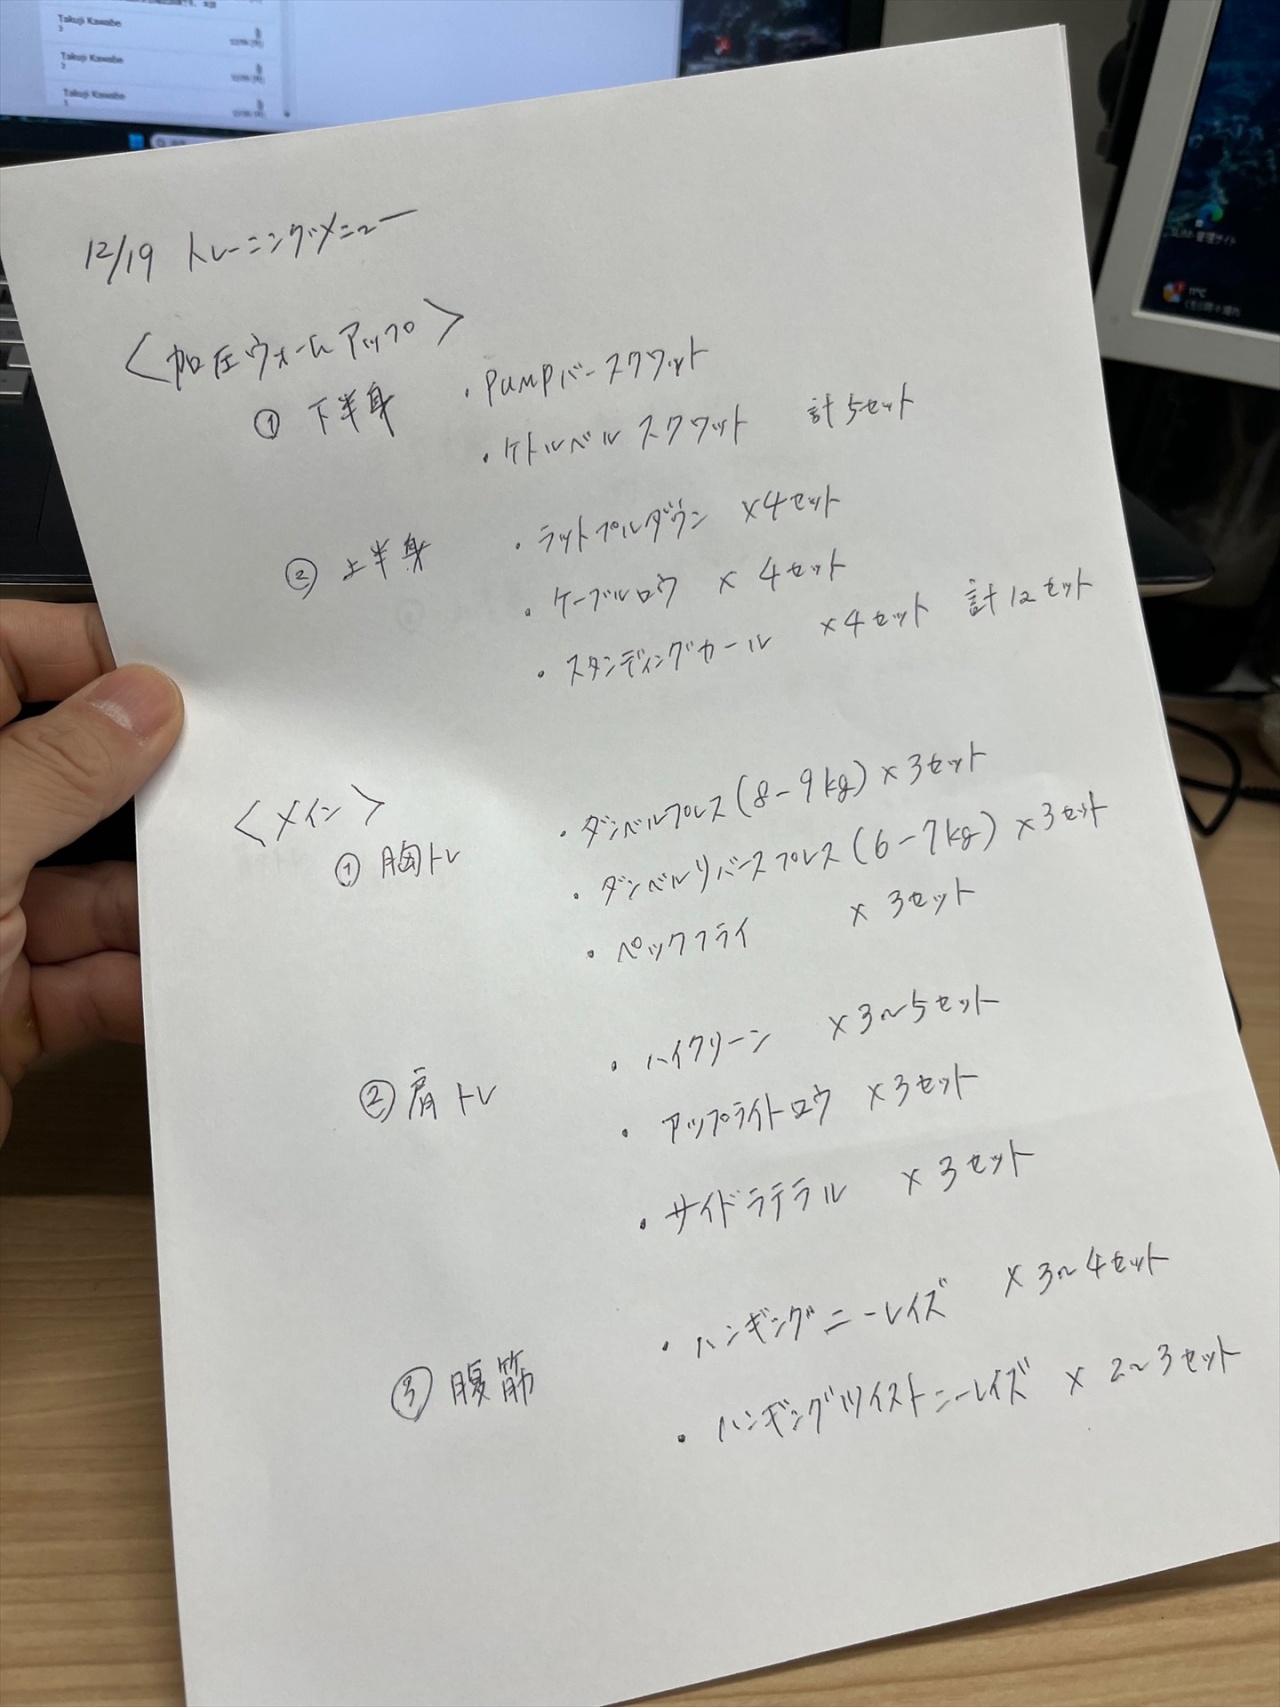 Takuji Kawabe
3
Takuji Kawabe
2
Takuji Kawabe
1
管理サイト
11°C
12/19 トレーニングメニュー
<加圧ウォームアップ>
① 下半身 ・PUMPバースクワット
・ケトルベルスクワット 計5セット
② 上半身 ・ラットプルダウン ×4セット
・ケーブルロウ × 4セット
・スタンディングカール ×4セット 計12セット
<メイン>
① 胸トレ ・ダンベルプレス(8-9kg)×3セット
・ダンベルリバースプレス(6-7kg)×3セット
・ペックフライ × 3セット
② 肩トレ ・ハイクリーン ×3~5セット
・アップライトロウ ×3セット
・サイドラテラル ×3セット
③ 腹筋 ・ハンギングニーレイズ ×3~4セット
・ハンギングツイストニーレイズ × 2~3セット